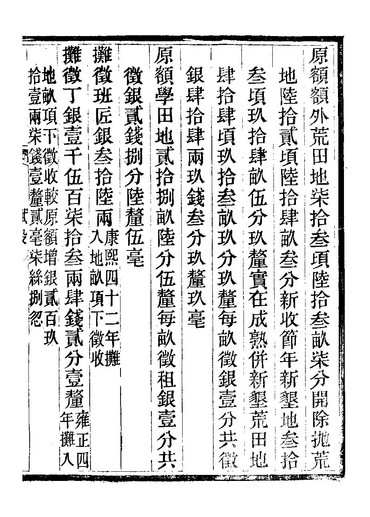 原額額外荒田地柒拾叁項陸拾叁畝柒分開除拋荒
地陸拾貳項陸拾肆畝叁分新收節年新墾地叁拾
叁項玖拾肆畝伍分玖釐實在成熟併新墾荒田地
肆拾肆項玖拾叁畝玖分玖釐每畝徵銀壹分共徵
銀肆拾肆兩玖錢叁分玖釐玖毫
原額學田地貳拾捌畝陸分伍釐每畝徵租銀壹分共
徵銀貳錢捌分陸釐伍毫
攤徵班匠銀叁拾陸兩康熙四十二年攤入地畝項下徵收
攤徵丁銀壹千伍百柒拾叁兩肆錢貳分壹釐雍正四年攤入
地畝項下徵收較原額增銀貳百玖
拾壹兩柒錢壹釐貳毫柒絲捌忽